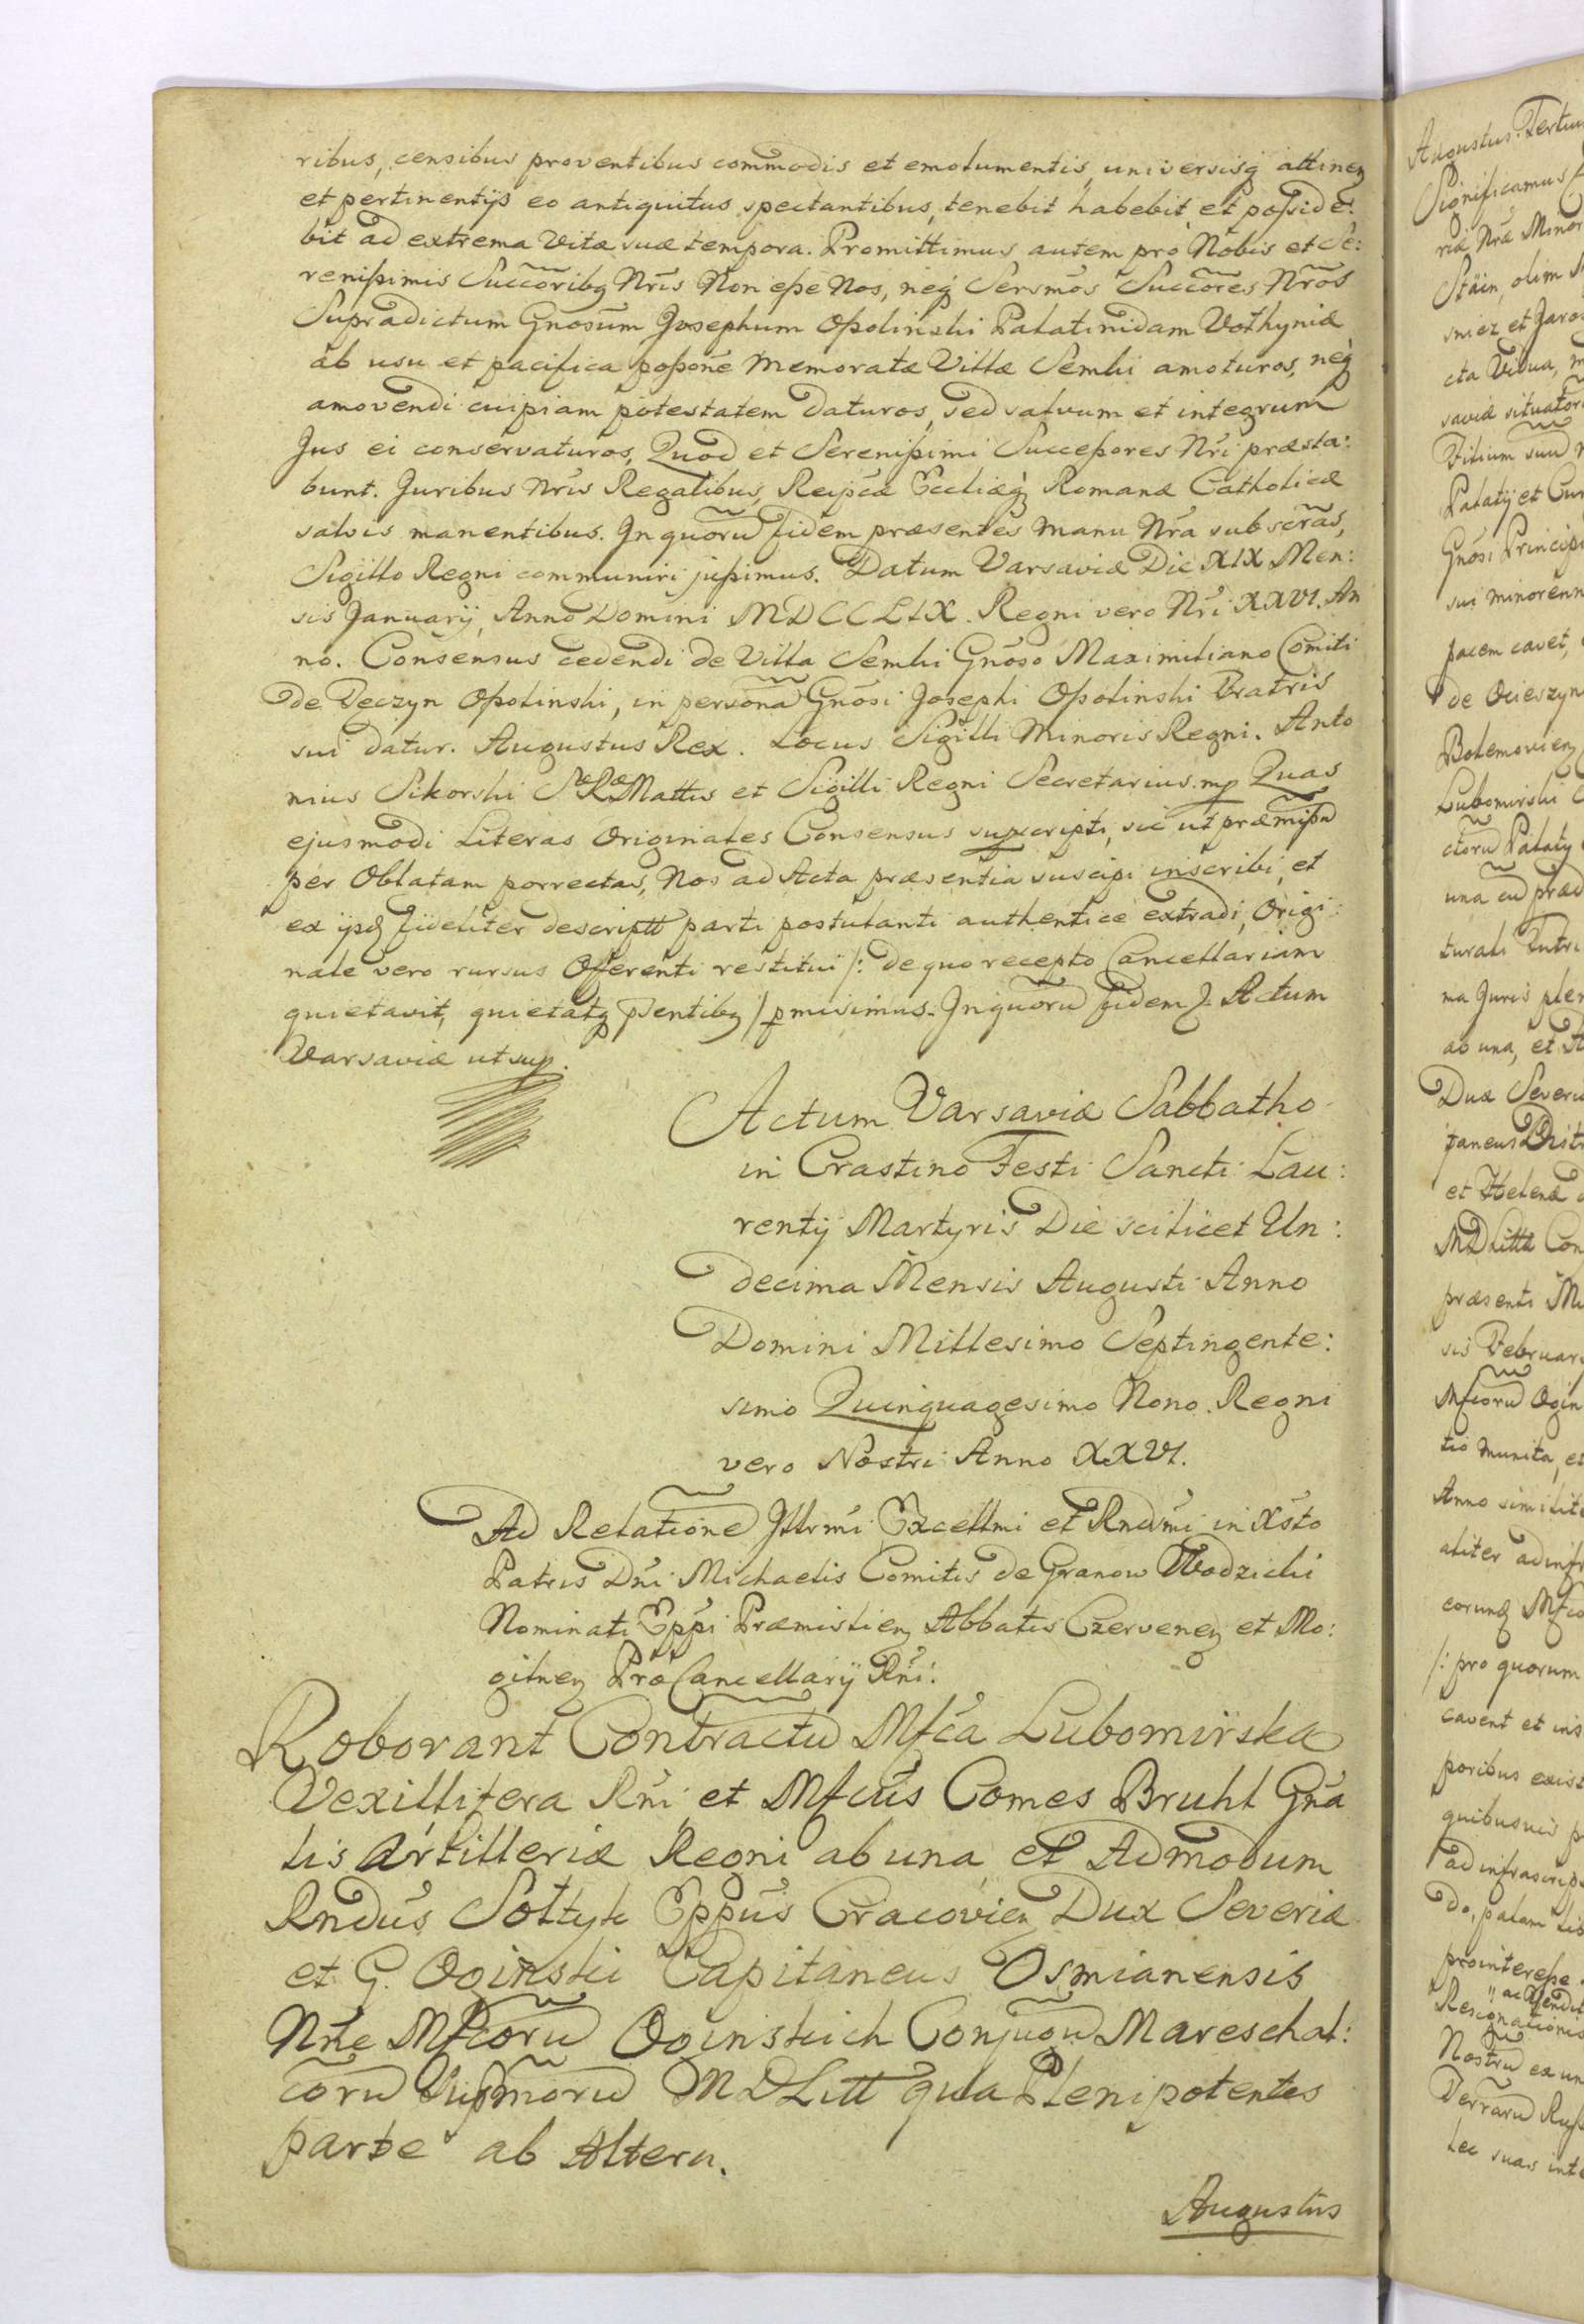 ribus, censibus proventibus commodis et emolumentis, universisq̃ attinen
et pertinentijs eo antiquitus spectantibus, tenebit habebit et posside:
bit ad extrema Vitæ suæ tempora. Promittimus autem pro Nobis et Se:
renissimis Succõribq Nrĩs Non esse Nos, neq̃ Sersmõs Succõres Nrõs
Supradictum Gnosum Josephum Opolinski Palatinidam Vołhyniæ
ab usu et pacifica possoñe memoratæ Villæ Semki amoturos, neq̃
amovendi cuipiam potestatem daturos, sed salvum et integrum
Jus ei conservaturos, Quod et Serenissimi Successores Nrĩ præsta:
bunt. Juribus Nrĩs Regalibus, Reipcæ Eccliæq̃ Romanæ Catholicæ
salvis manentibus. In quorũ fidem præsentes manu Nrã subscrãs,
Sigillo Regni communiri jussimus. Datum Varsaviæ Die XIX Men:
sis January, Anno Domini MDCCLIX. Regni vero Nrĩ XXVI. An
no. Consensus cedendi de Villa Semki Gnõso Maximiliano Comiti
de Teczyn Opolinski, in persona Gnõsi Josephi Opolinski Fratris
sui datur. Augustus Rex. Locus Sigilli Minoris Regni. Anto
nius Sikorski S.R.Mattis et Sigilli Regni Secretarius. mp Quas
ejusmodi Literas Originales Consensus suprascripti, sic ut præmissũ
per Oblatam porrectas, Nos ad Acta præsentia suscipi inscribi, et
ex ijsq fideliter descriptt parti postulanti authentice extradi, Origi:
nale vero rursus Offerenti restitui /: de quo recepto Cancellariam
quietavit, quietatq pŝentibq / pmisimus. In quorũ fidem &. Actum
Varsaviæ ut sup.
Actum Varsaviæ Sabbatho
in Crastino Festi Sancti Lau:
rentij Martyris Die scilicet Un:
decima Mensis Augusti Anno
Domini Millesimo Septingente:
simo Quinquagesimo Nono. Regni
vero Nostri Anno XXVI.
Ad Relationẽ Jllrmi Excellmi et Rndmi in Xsto
Patris Dni Michaelis Comitis de Granow Wodzicki
Nominati Eppi Præmislien Abbatis Czervenen et Mo:
gilnen ProCancellarij Rni.
Roborant Contractũ Mfca Lubomirska
Vexillifera Rni et Mfcus Comes Bruhl Gña
lis Artilleriæ Regni ab una, et Admodum
Rndus Sołtyk Eppus Cracovien Dux Severiæ
et G. Oginski Capitaneus Osmianensis
Nñe Mfcorũ Oginskich Conjugũ Mareschal:
corũ Supmorũ MDLitt qua Plenipotentes
parte ab Altera.
Augustus
Augustus Tertius
Significamus
riæ Nræ Minor
Stäin, olim
sniez et Jaros
cta Vidua,
saviæ situator
Titium suũ
Palatij et Cur
Gnõsi Princip
sui minorenn
pacem cavet,
de Ocieszyn
Bolemovien
Lubomirski
ctorũ Palaty
una cũ præd
turali Tutri
ma Juris plen
ab una, et A
Dux Severiæ
taneus Distr
et Helenæ
MDLittæ Con
præsenti Me
sis Februar
Mfcorũ Ogin
tio munita, et
Anno similite
aliter ad infr
eorunq Mfco
/: pro quorum
cavent et ins
poribus exist
quibusvis p
ad infrascrip
do, palam lib
pro interesse
Resignationis
Nostrũ ex un
Terrarũ Russ
hec suas inte